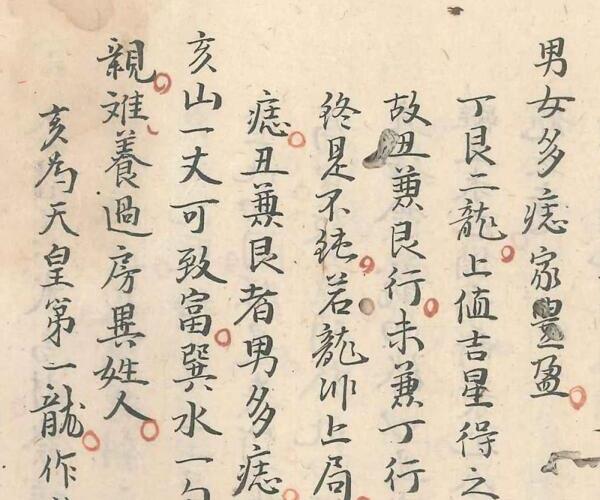 男女多痣家豊盈
丁艮二龍上值吉星得之
故丑兼艮行未兼丁行
終是不純若龍非上局
痣丑兼艮者男多痣
亥山一丈可致富巽水一勺
親难養過房異姓人
亥為天皇第一龍作